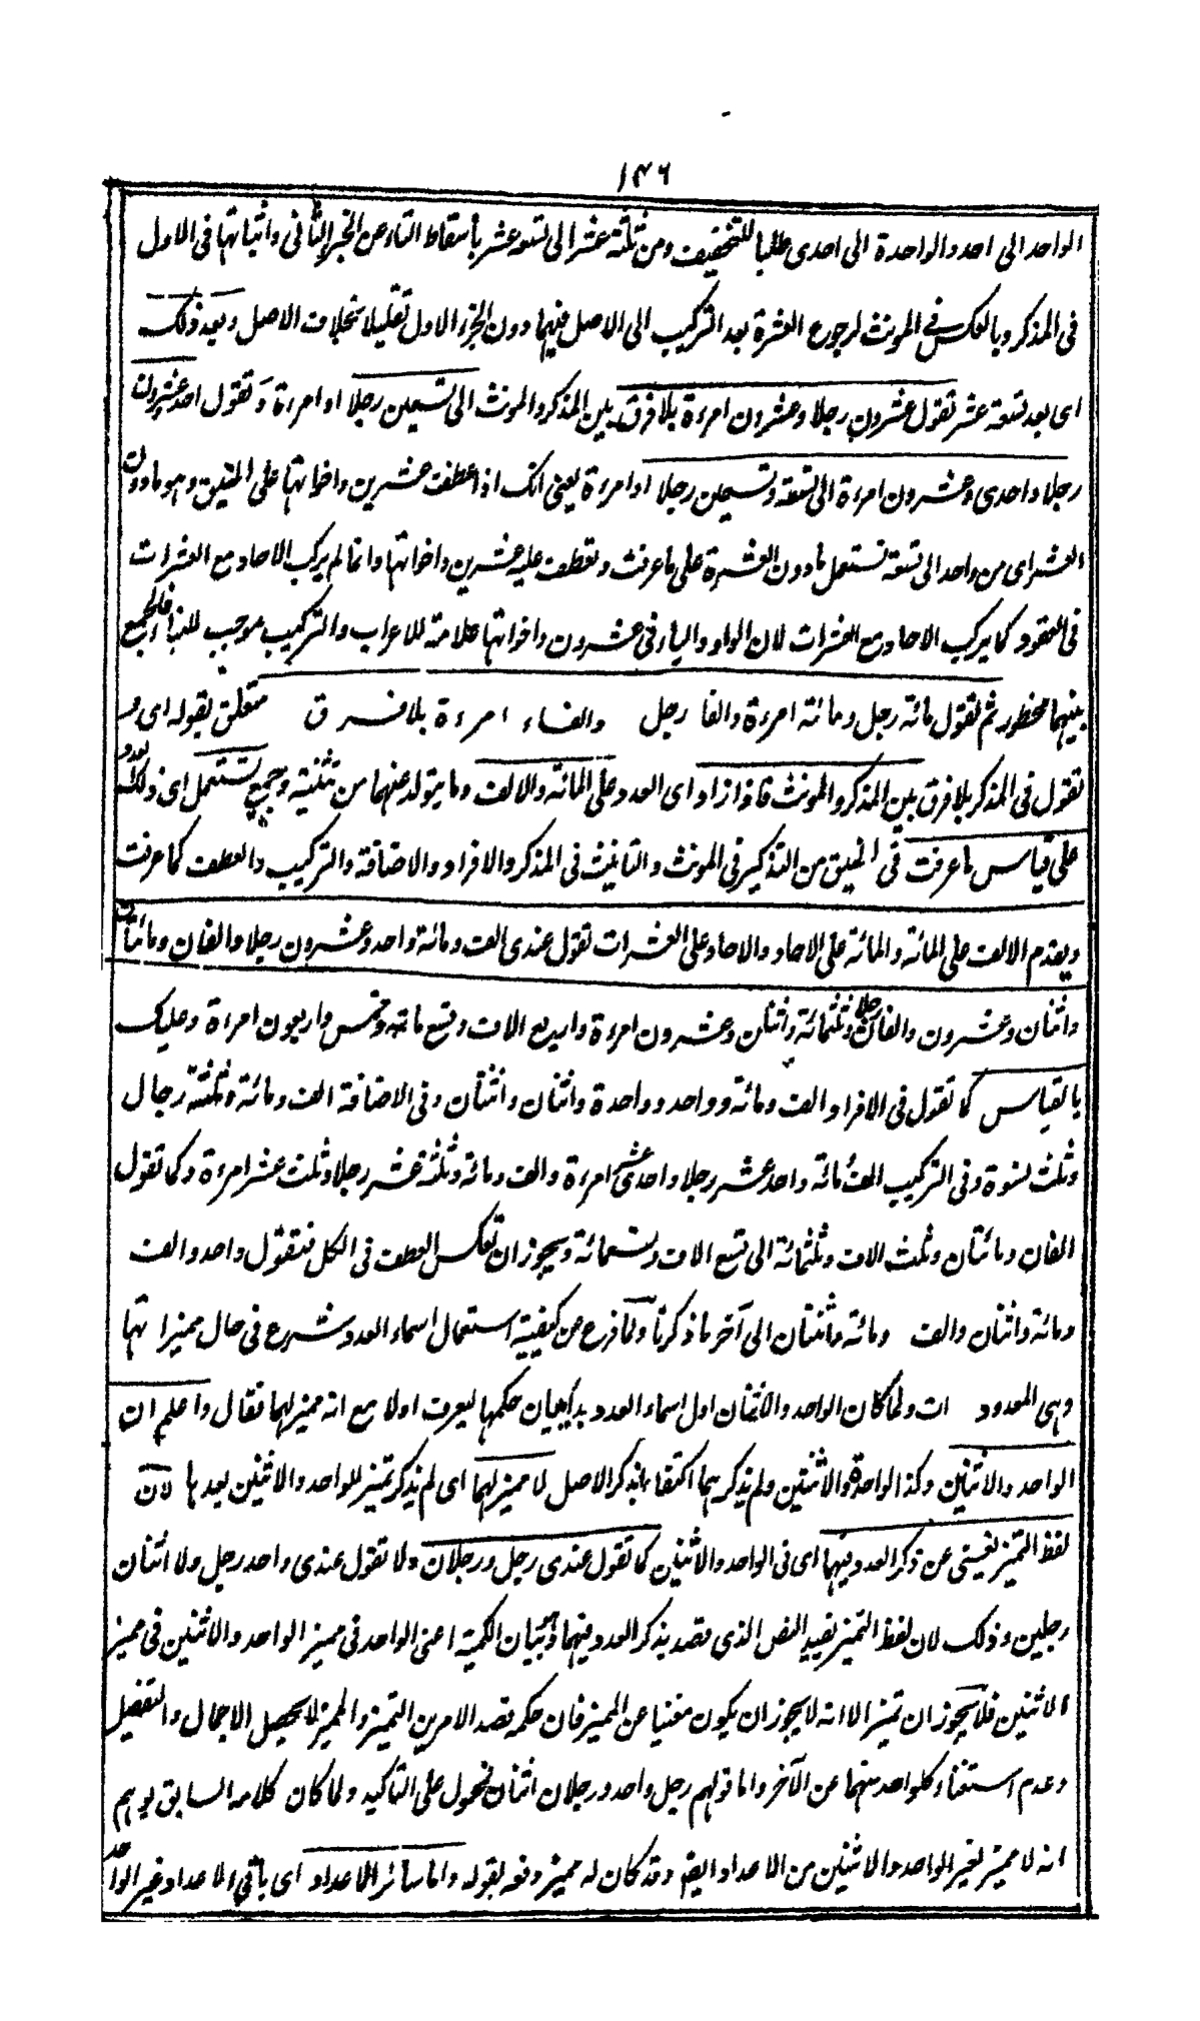 ١٤٦
الواحد الى احد والواحدة الى احدى طلبا للتخفيف ومن ثلثة عشر الى تسعة عشر بأسقاط التاء من الجزء الثانى واثباتها فى الاول
فى المذكر وبالعكس فى المونث لرجوع العشرة بعد التركيب الى الاصل فيهما دون الجزء الاول تقليلا بخلاف الاصل وبعد ذلك
اى بعد تسعة عشر تقول عشرون رجلا وعشرون امرءة بلا فرق بين المذكر والمونث الى تسعين رجلا او امرءة وتقول احد وعشرون
رجلا واحدى وعشرون امرءة الى تسعة وتسعين رجلا او امرءة يعنى انك اذا عطفت عشرين واخواتها على النيف وهو ما دون
العشر اى من واحد الى تسعة تستعمل ما دون العشرة على ما عرفت وتعطف عليه عشرين واخواتها وانما لم يركب الاحاد مع العشرات
فى العقود كما يركب الاحاد مع العشرات لان الواو والياء فى عشرون واخواتها علامة للاعراب والتركيب موجب للبناء فالجمع
بينهما محظور ثم تقول مائة رجل ومائة امرءة والفا رجل والفاء امرءة بلا فرق متعلق بقوله اى و
تقول فى المذكر بلا فرق بين المذكر والمونث فاذا زاد اى العدد على المائة والالف وما يتولد عنهما من تثنية وجمع يستعمل اى ذلك العدد
على قياس ما عرفت فى النيف من التذكير فى المونث والتانيث فى المذكر والافراد والاضافة والتركيب والعطف كما عرفت
ويقدم الالف على المائة والمائة على الاحاد والاحاد على العشرات تقول عندى الف ومائة واحد وعشرون رجلا والفان ومائتان
واثنان وعشرون رجلا والفان وثلثمائة واثنان وعشرون امرءة واربع الاف وتسع مائة وخمس واربعون امرءة وعليك
بالقياس كما تقول فى الافراد الف ومائة وواحد وواحدة واثنان واثنتان وفى الاضافة الف ومائة وثلثة رجال
وثلث نسوة وفى التركيب الف ومائة واحد عشر رجلا واحدى عشر امرءة والف ومائة وثلثة عشر رجلا وثلث عشر امرءة وكما تقول
الفان ومائتان وثلث الاف وثلثمائة الى تسع الاف وتسعمائة ويجوز ان تعكس العطف فى الكل فتقول واحد والف
ومائة واثنان والف ومائة واثنتان الى آخر ما ذكرنا ولما فرغ من كيفية استعمال اسماء العدد شرع فى حال مميزاتها
وهى المعدودات ولما كان الواحد والاثنان اول اسماء العدد بدأ ببيان حكمها ليعرف اولا مع انه مميز لهما فقال واعلم ان
الواحد والاثنين وكذا الواحدة والاثنتين ولم يذكرهما اكتفاء بذكر الاصل لا مميز لهما اى لم يذكر تميز للواحد والاثنين بعدها لان
لفظ التميز يغنى عن ذكر العدد فيهما اى فى الواحد والاثنين كما تقول عندى رجل ورجلان ولا تقول عندى واحد رجل ولا اثنان
رجلين وذلك لان لفظ التميز يفيد النص الذى قصد بذكر العدد فيهما وبيان الكمية اعنى الواحد فى مميز الواحد والاثنين فى مميز
الاثنين فلا يجوز ان تميز الا انه لا يجوز ان يكون مغنيا عن المميز فان حكمه قصد الامرين التميز والمميز لا يحصل الاجمال والتفصيل
وعدم استغناء كلواحد منهما عن الآخر واما قولهم رجل واحد ورجلان اثنان فحمول على التاكيد ولما كان كلامه السابق يوهم
انه لا مميز لغير الواحد والاثنين من الاعداد ايضم وقد كان له مميز دفعه بقوله واما سائر الاعداد اى باقى الاعداد غير الواحد